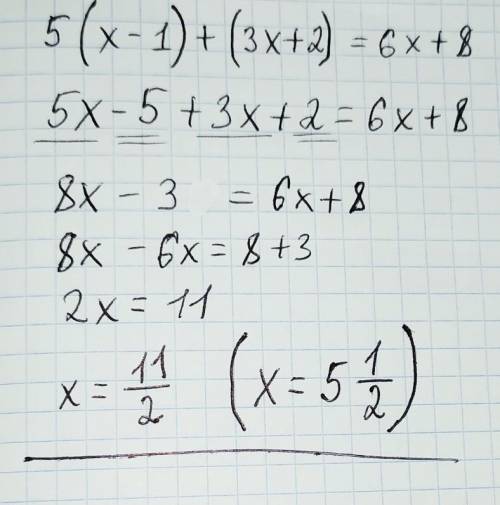 5(x-1)+(3x+2)=6x+8
5x-5+3x+2=6x+8
8x-3=6x+8
8x-6x=8+3
2x=11
x=11/2 (x=5 1/2)